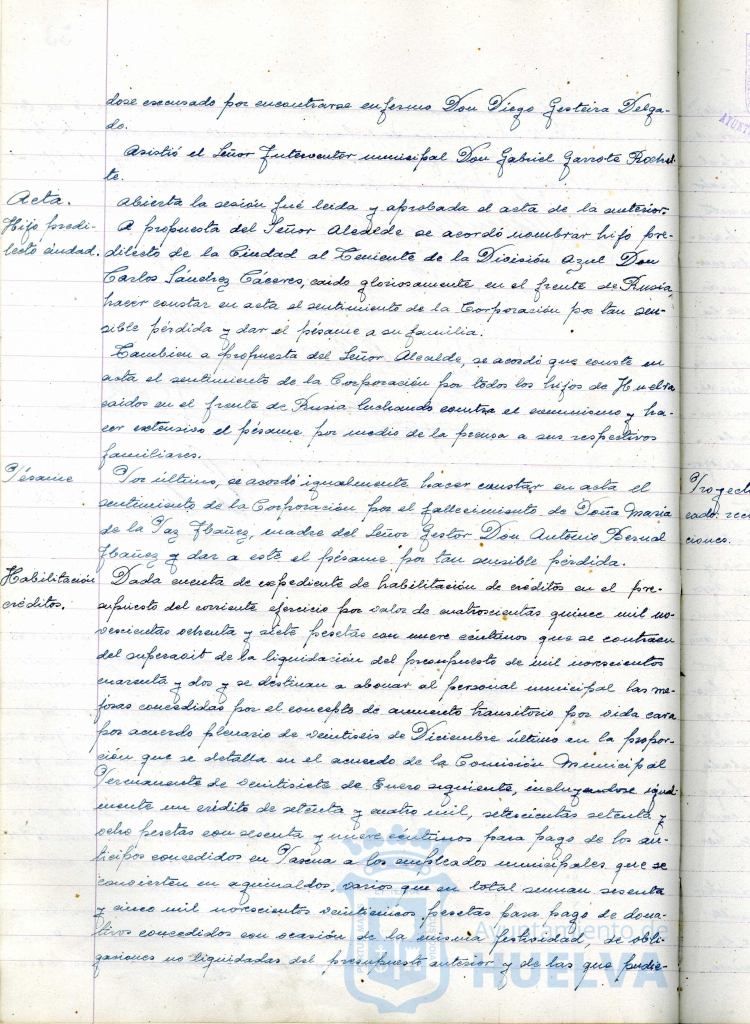 dose escusado por encontrarse enfermo Don Diego Gesteira Delga-
do.
Asistió el Señor Interventor municipal Don Gabriel Garrote
te.
Acta.
Abierta la sesión fué leida y aprobada el acta de la anterior.
Hijo predi-
lecto ciudad.
A propuesta del Señor Alcalde se acordó nombrar hijo pre-
dilecto de la Ciudad al Teniente de la División Azul Don
Carlos Sánchez Cáceres, caido gloriosamente en el frente de Rusia,
hacer constar en acta el sentimiento de la Corporación por tan sen-
sible pérdida y dar el pésame a su familia.
Tambien a propuesta del Señor Alcalde, se acordó que conste en
acta el sentimiento de la Corporación por todos los hijos de Huelva
caidos en el frente de Rusia luchando contra el comunismo y ha-
cer extensivo el pésame por medio de la prensa a sus respectivos
familiares.
Pésame
Por último, se acordó igualmente hacer constar en acta el
sentimiento de la Corporación por el fallecimiento de Doña Maria
de la Paz Ibañez, madre del Señor Gestor Don Antonio Bernal
Ibañez y dar a este el pésame por tan sensible pérdida.
Habilitación
créditos.
Dada cuenta de expediente de habilitación de créditos en el pre-
supuesto del corriente ejercicio por valor de cuatroscientas quince mil no-
vescientas ochenta y siete pesetas con nueve centimos que se contraen
del superavit de la liquidación del presupuesto de mil novescientos
cuarenta y dos y se destinan a abonar al personal municipal las me-
joras concedidas por el concepto de aumento transitorio por vida cara
por acuerdo plenario de veintiseis de Diciembre último en la propor-
ción que se detalla en el acuerdo de la Comisión Municipal
Permanente de veintisiete de Enero siguiente, incluyendose igual-
mente un crédito de setenta y cuatro mil, setescientas setenta y
ocho pesetas con sesenta y nueve centimos para pago de los an-
ticipos concedidos en Pascua a los empleados municipales que se
convierten en aguinaldos, varios que en total suman sesenta
y cinco mil novescientos veinticinco pesetas para pago de dona-
tivos concedidos con ocasión de la misma festividad, de obli-
gaciones no liquidadas del presupuesto anterior y de las que pudie-
Ayuntamiento de
HUELVA
Proyecto
ciones.